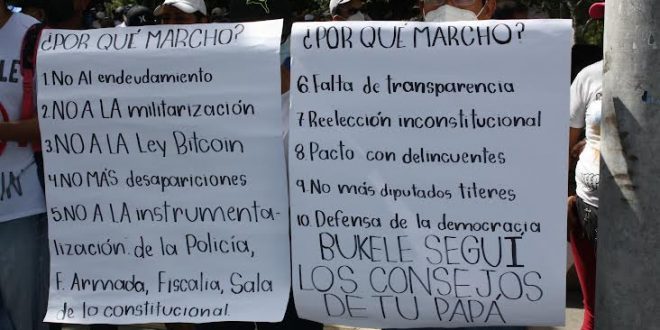 ¿POR QUÉ MARCHO?
1.NO Al endeudamiento
2.NO A LA militarización
3.NO A LA Ley Bitcoin
4.NO MÁS desapariciones
5.NO A LA instrumenta-
lización de la Policía,
F. Armada, Fiscalia, Sala
de lo constitucional.
¿POR QUÉ MARCHO?
6.Falta de transparencia
7.Reelección inconstitucional
8.Pacto con delincuentes
9.No más diputados titeres
10.Defensa de la democracia
BUKELE SEGUÍ
LOS CONSEJOS
DE TU PAPÁ